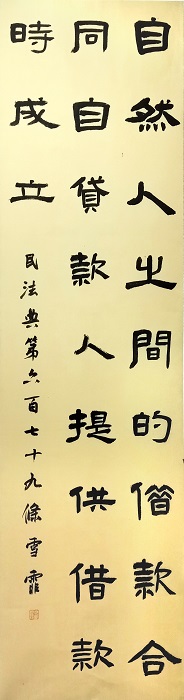 自然人之間的借款合
同自貸款人提供借款
時成立
民法典第六百七十九條雪霏